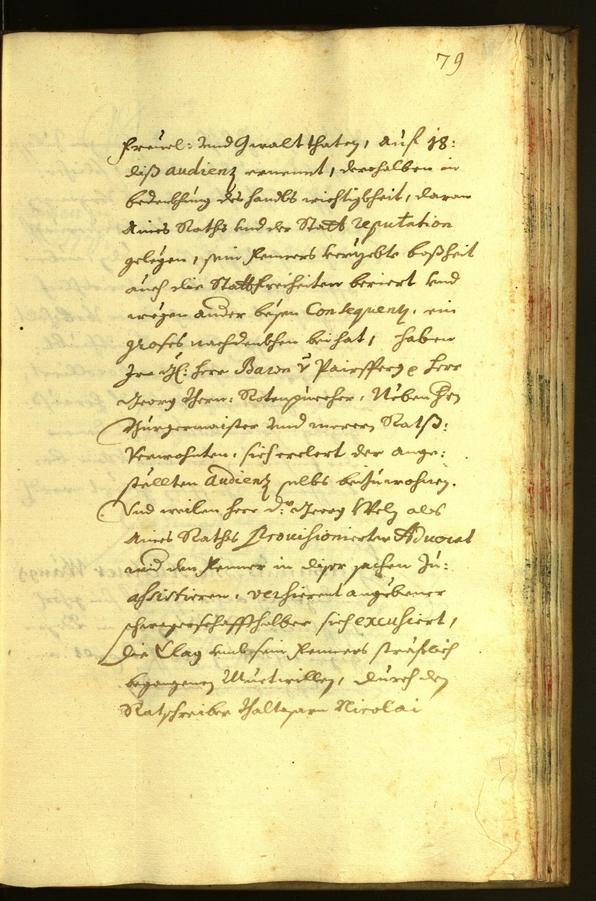 79
frevel: und Gwaltthaten, auf 18:
diß audienz ernennt, derohalben in
bedenkhung des handls wichtigkheit, daran
Aines Raths und der Statt reputation
gelegen, sein Renners verüebte boßheit
auch die Stattfreiheiten beriert und
wegen ander bösen Consequenz, ein
großes nachdenkhen bei hat, haben
Ire Hl: Herr Baron v Pairssperg e Herr
Georg Rotenpuecher, Neben
Bürgermaister und merern Ratß:
Verwohnten, sich erclert der ange:
stellten audienz selbs beizuwohnen.
Und weilen Herr D: Georg Welz als
Aines Raths Provisionierter Advocat
wid den Renner in diser sachen zu:
assistieren, angebener
schwagerschafft halber sich excusiert,
die Clag umb sein Renners sträflich
begangenen Muetwillen, durch den
Ratschreiber Balthasarn Nicolai